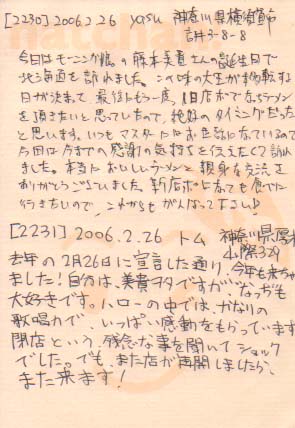 [2230] 2006.2.26 yasu 神奈川県横須賀市
3-8-8
今日はモーニング娘。の藤本美貴さんの誕生日で
北海道を訪れました。この味の大王が移転する
日が決まって、最後にもう一度、旧店舗でカレーラーメン
を頂きたいと思っていたので、絶好のタイミングだった
と思います。いつもマスターにはお世話になっているので
今回は今までの感謝の気持ちを伝えたくて訪れ
ました。本当においしいラーメンと親身な交流を
ありがとうございました。新店舗になっても食べに
行きたいので、これからもがんばって下さい♪
[2231] 2006.2.26 トム 神奈川県厚木
山際329
去年の2月26日に宣言した通り、今年も来ちゃい
ました!自分は、美貴ヲタですがなっちも
大好きです。ハローの中では、かなりの
歌唱力で、いっぱい感動をもらっています。
閉店という残念な事を聞いてショック
でした。でも、また店が再開しましたら、
また来ます!